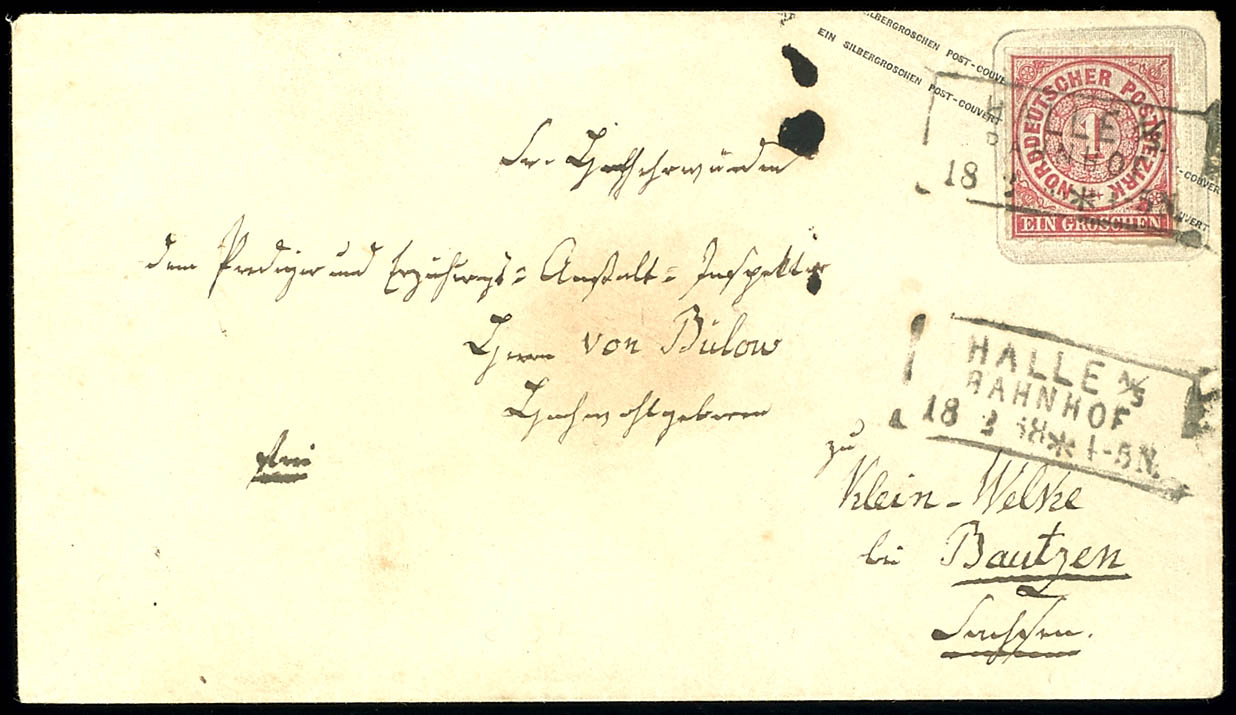 EIN SILBERGROSCHEN POST-COUVERT
EIN SILBERGROSCHEN POST-COUVERT
NORDDEUTSCHER POSTBEZIRK
1
EIN GROSCHEN
HALLE A/S
BAHNHOF
18 2 * 1-5N.
Sr. Hochehrwürden
dem Prediger und Erziehungs-Anstalt-Inspektor
Herrn von Bülow
Hochwohlgeboren
frei
HALLE A/S
BAHNHOF
18 2 68 * 1-5N.
zu
Klein-Welke
bei Bautzen
Sachsen.